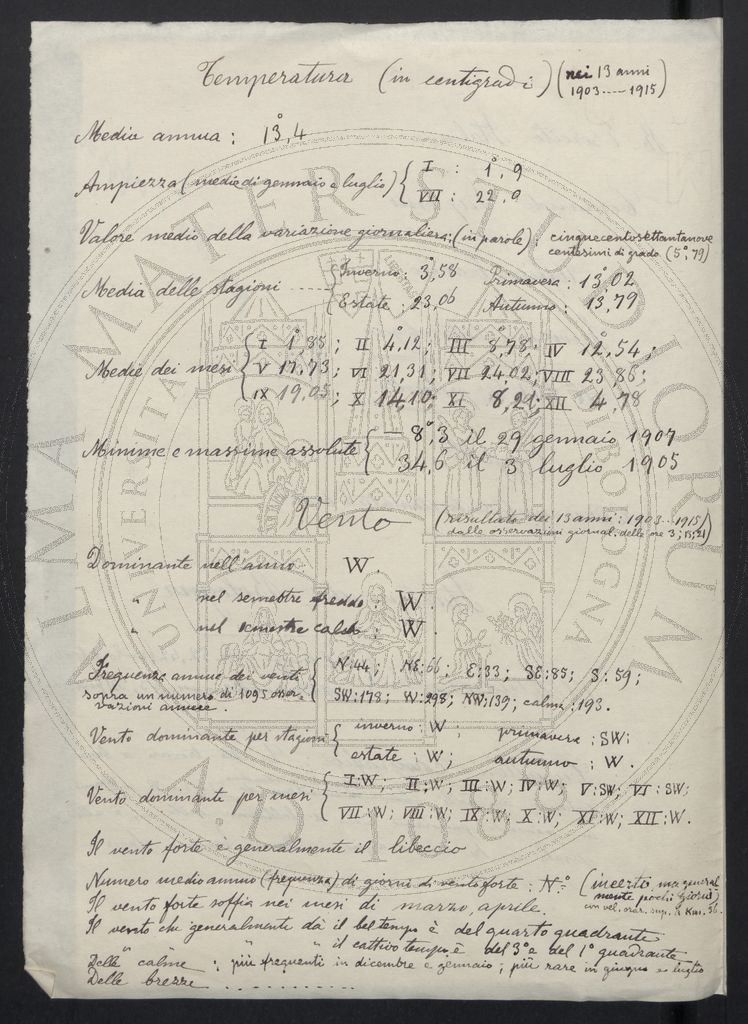 Temperatura (in centigradi) (nei 13 anni
1903 ---- 1915)
Media annua : 13°,4
Ampiezza (media di gennaio e luglio) { I : 1°,9
VII : 22,9
Valore medio della variazione giornaliera: (in parole) : cinquecentosettantanove
centesimi di grado (5°,79)
Media delle stagioni ---- { Inverno : 3°,58 Primavera : 13°,02
Estate : 23,06 Autunno : 13,79
Medie dei mesi { I 1°,85 ; II 4°,12 ; III 8°,78 ; IV 12°,54 ;
V 17,73 ; VI 21,31 ; VII 24,02 ; VIII 23,86 ;
IX 19,05 ; X 14,10 ; XI 8,21 ; XII 4,78
Minime e massime assolute { — 8°,3 il 29 gennaio 1907
34,6 il 3 luglio 1905
Vento (risultato dei 13 anni : 1903 --- 1915)
dalle osservazioni giornal. delle ore 3; 15; 21
Dominante nell'anno W.
" nel semestre freddo : W.
" nel semestre caldo : W.
Frequenza annua dei venti { N:44; NE:66; E:33; SE:85; S:59;
sopra un numero di 1095 osser-
vazioni annue. SW:178; W:298; NW:139; calma:193.
Vento dominante per stagioni { inverno : W ; primavera : SW ;
estate : W ; autunno : W.
Vento dominante per mesi { I:W; II:W; III:W; IV:W; V:SW; VI:SW;
VII:W; VIII:W; IX:W; X:W; XI:W; XII:W.
Il vento forte è generalmente il libeccio
Numero medio annuo (frequenza) di giorni di vento forte : N.° (incerto, ma general
mente pochi giorni)
con vel. orar. sup. a Km.
Il vento forte soffia nei mesi di marzo, aprile.
Il vento che generalmente dà il bel tempo è del quarto quadrante
" " " " il cattivo tempo è del 3° e del 1° quadrante
Delle calme : più frequenti in dicembre e gennaio ; più rare in giugno e luglio
Delle brezze . . . . . . . . . .
ALMA MATER STUDIORUM
UNIVERSITÀ DI BOLOGNA
A.D. 1088
LIBERTAS